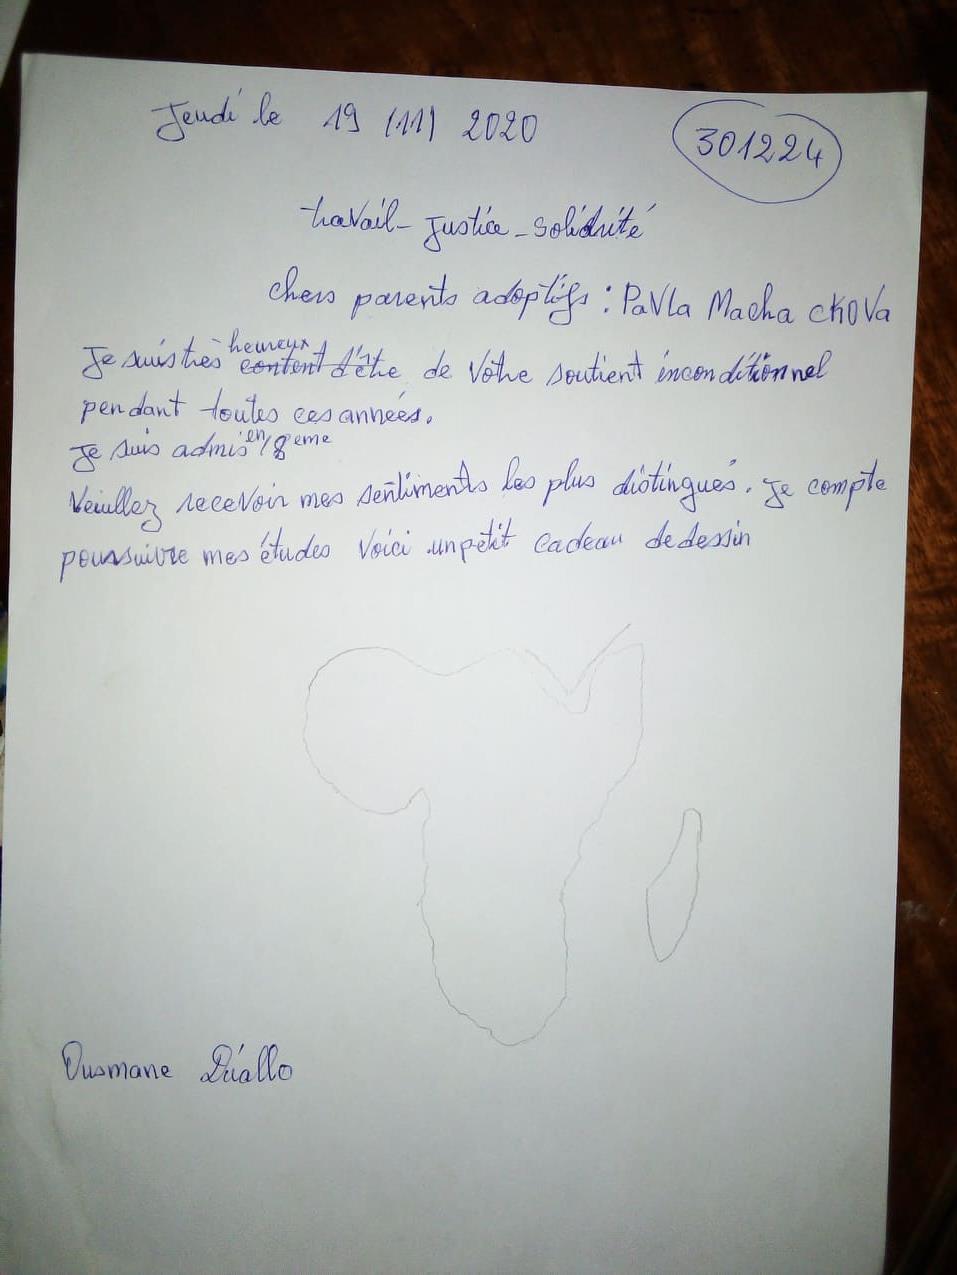 Jeudi le 19 (11) 2020
301224
travail - Justice - solidrité
chers parents adoptifs : PaVla Macha ckova
Je suis très heureux content d'être de Vôtre soutient inconditionnel
pendant toutes ces années.
Je suis admis en 8eme
Veuillez recevoir mes sentiments les plus distingués. Je compte
poursuivre mes études Voici un petit cadeau de dessin
Ousmane Diallo